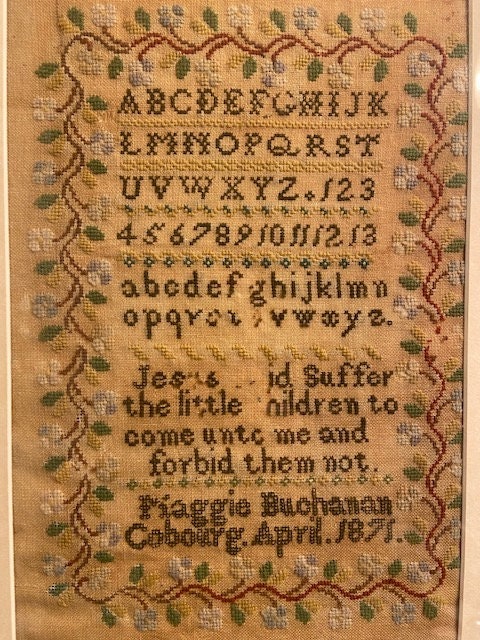 ABCDEFGHIJK
LMNOPQRST
UVWXYZ.123
45678910111213
abcdefghijklmn
opqrs vwxyz.
Jesus said Suffer
the little children to
come unto me and
forbid them not.
Maggie Buchanan
Cobourg. April. 1871.